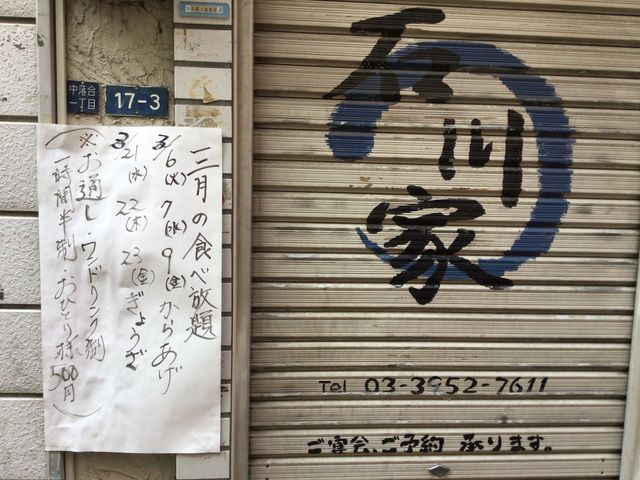 中落合
一丁目
17-3
三月の食べ放題
3/6(火) 7(水) 9(金)からあげ
3/21(水) 22(木) 23(金)ぎょうざ
※お通し・ワンドリンク制
一時間半制・おひとり様500円
石川家
Tel 03-3952-7611
ご宴会、ご予約 承ります。